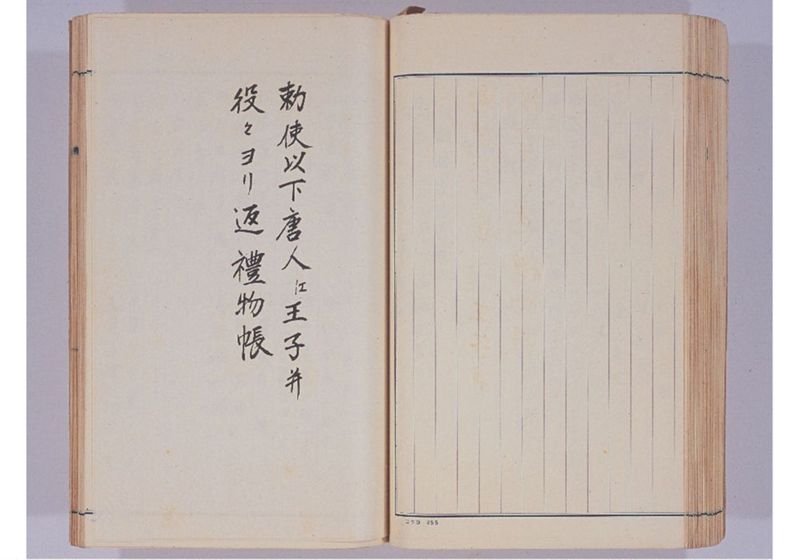 勅使以下唐人江王子并
役々ヨリ返禮物帳